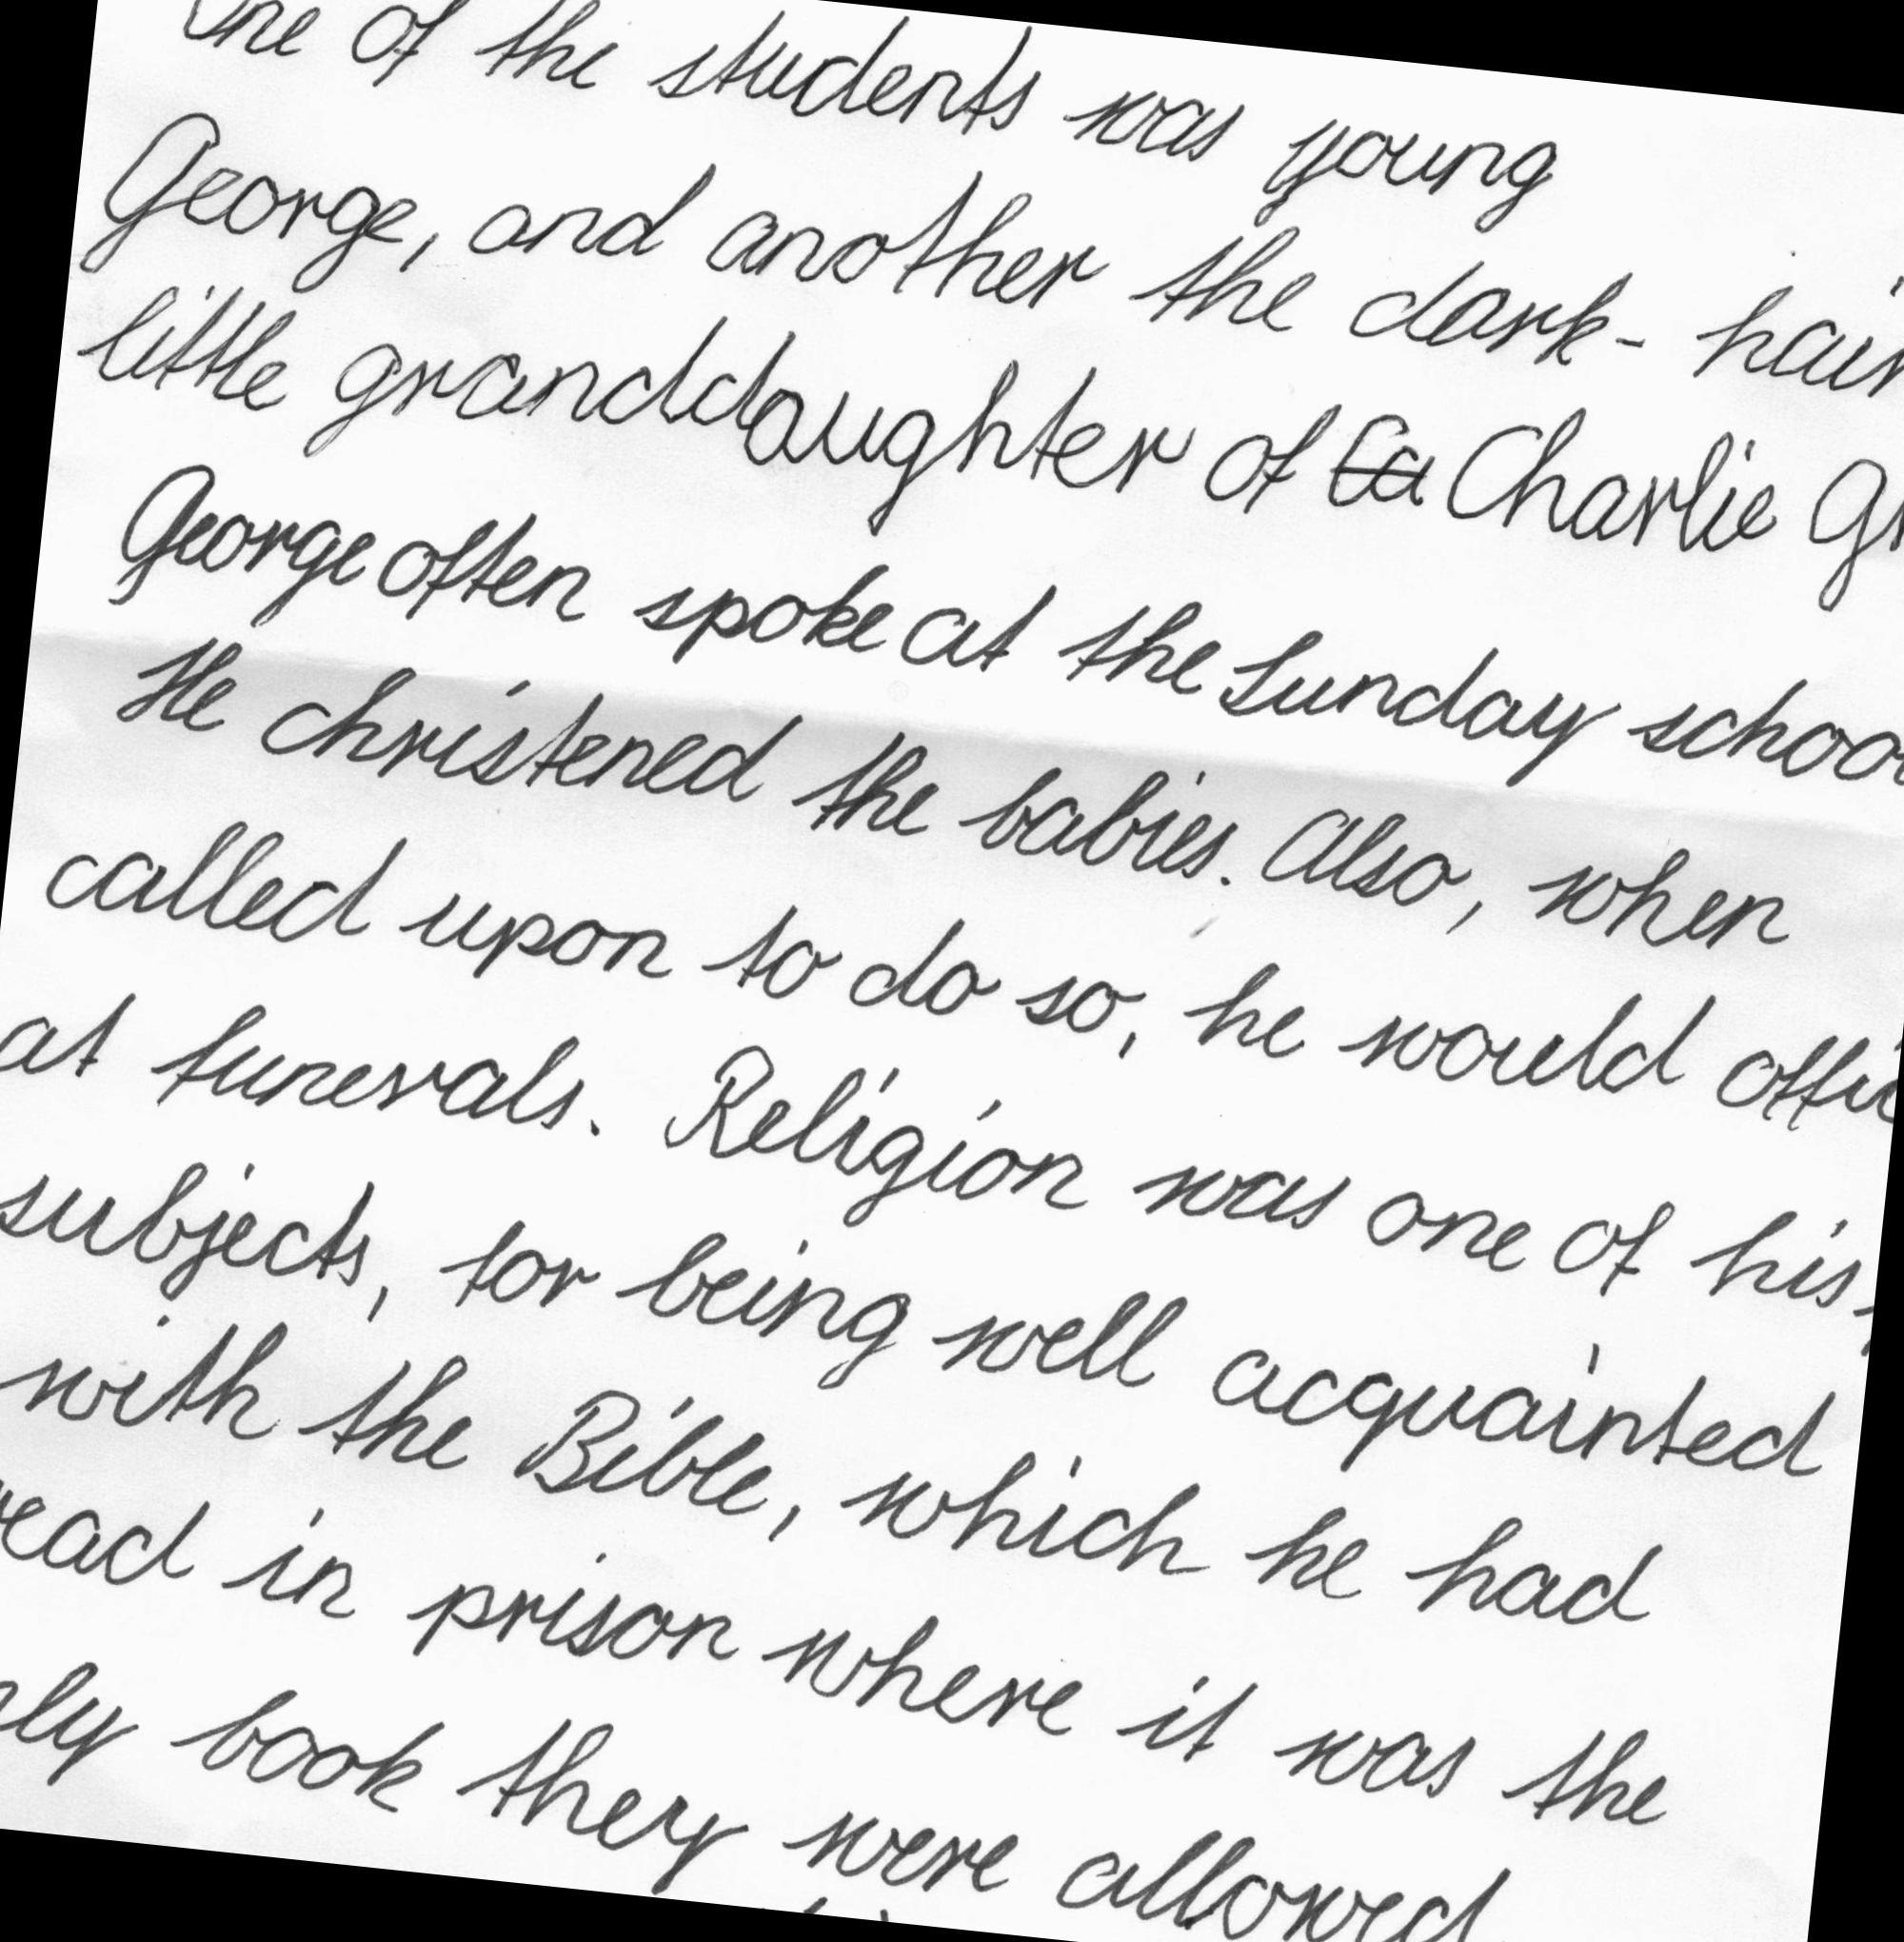 One of the students was young
George, and another the dark-hair
little granddaughter of ~~Ca~~ Charlie Gr
George often spoke at the Sunday school
He christened the babies. Also, when
called upon to do so, he would offic
at funerals. Religion was one of his
subjects, for being well acquainted
with the Bible, which he had
read in prison where it was the
nly book they were allowed